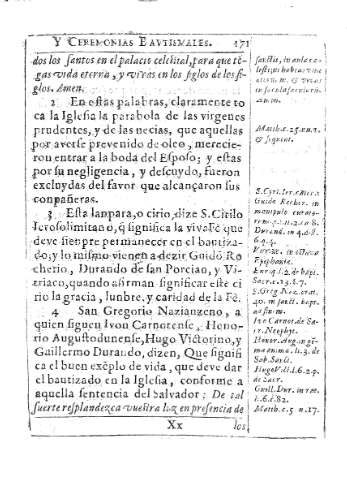 Y CEREMONIAS BAUTISMALES. 171
dos los santos en el palacio celestial, para que tē-
gas vida eterna, y vivas en los siglos de los si-
glos. Amen.
2 En estas palabras, claramente to-
ca la Iglesia la parabola de las virgenes
prudentes, y de las necias, que aquellas
por averse prevenido de oleo, merecie-
ron entrar a la boda del Esposo; y estas
por su negligencia, y descuydo, fueron
excluydas del favor que alcançaron sus
conpañeras.
3 Esta lanpara, o cirio, dize S. Cirilo
Ierosolimitano, q̄ significa la viva Fè que
deve sienpre permanecer en el bautiza-
do; y lo mismo vienen a dezir Guido Ro
cherio, Durando de san Porciano, y Vi-
triaco, quando afirman significar este ci
rio la gracia, lunbre, y caridad de la Fè.
4 San Gregorio Nazianzeno, a
quien siguen Ivon Carnotense, Hono-
rio Augustodunense, Hugo Victorino, y
Guillermo Durando, dizen, Que signifi
ca el buen exēplo de vida, que deve dar
el bautizado en la Iglesia, conforme a
aquella sentencia del Salvador: De tal
suerte resplandezca vuestra luz en presencia de
Xx los
Matth. 25. nu.
& sequent.
S. Cyri. Ier.
Guido Rocher. in
manipulo
Durand. in 4. d. 6.
q. 4.
Epiphanie.
S. Greg. Naz. orat.
40. in sanct. bapt.
Ivo Carnot. de Sa-
cr. Neophyt.
Honor. Aug. in gē-
ma anima. l. 3. de
Sab. Sanct.
Hugo Vict. l. 6. 2. p.
de Sacr.
Guill. Dur. in rat.
l. 6. c. 82.
Matth. c. 5. n. 17.